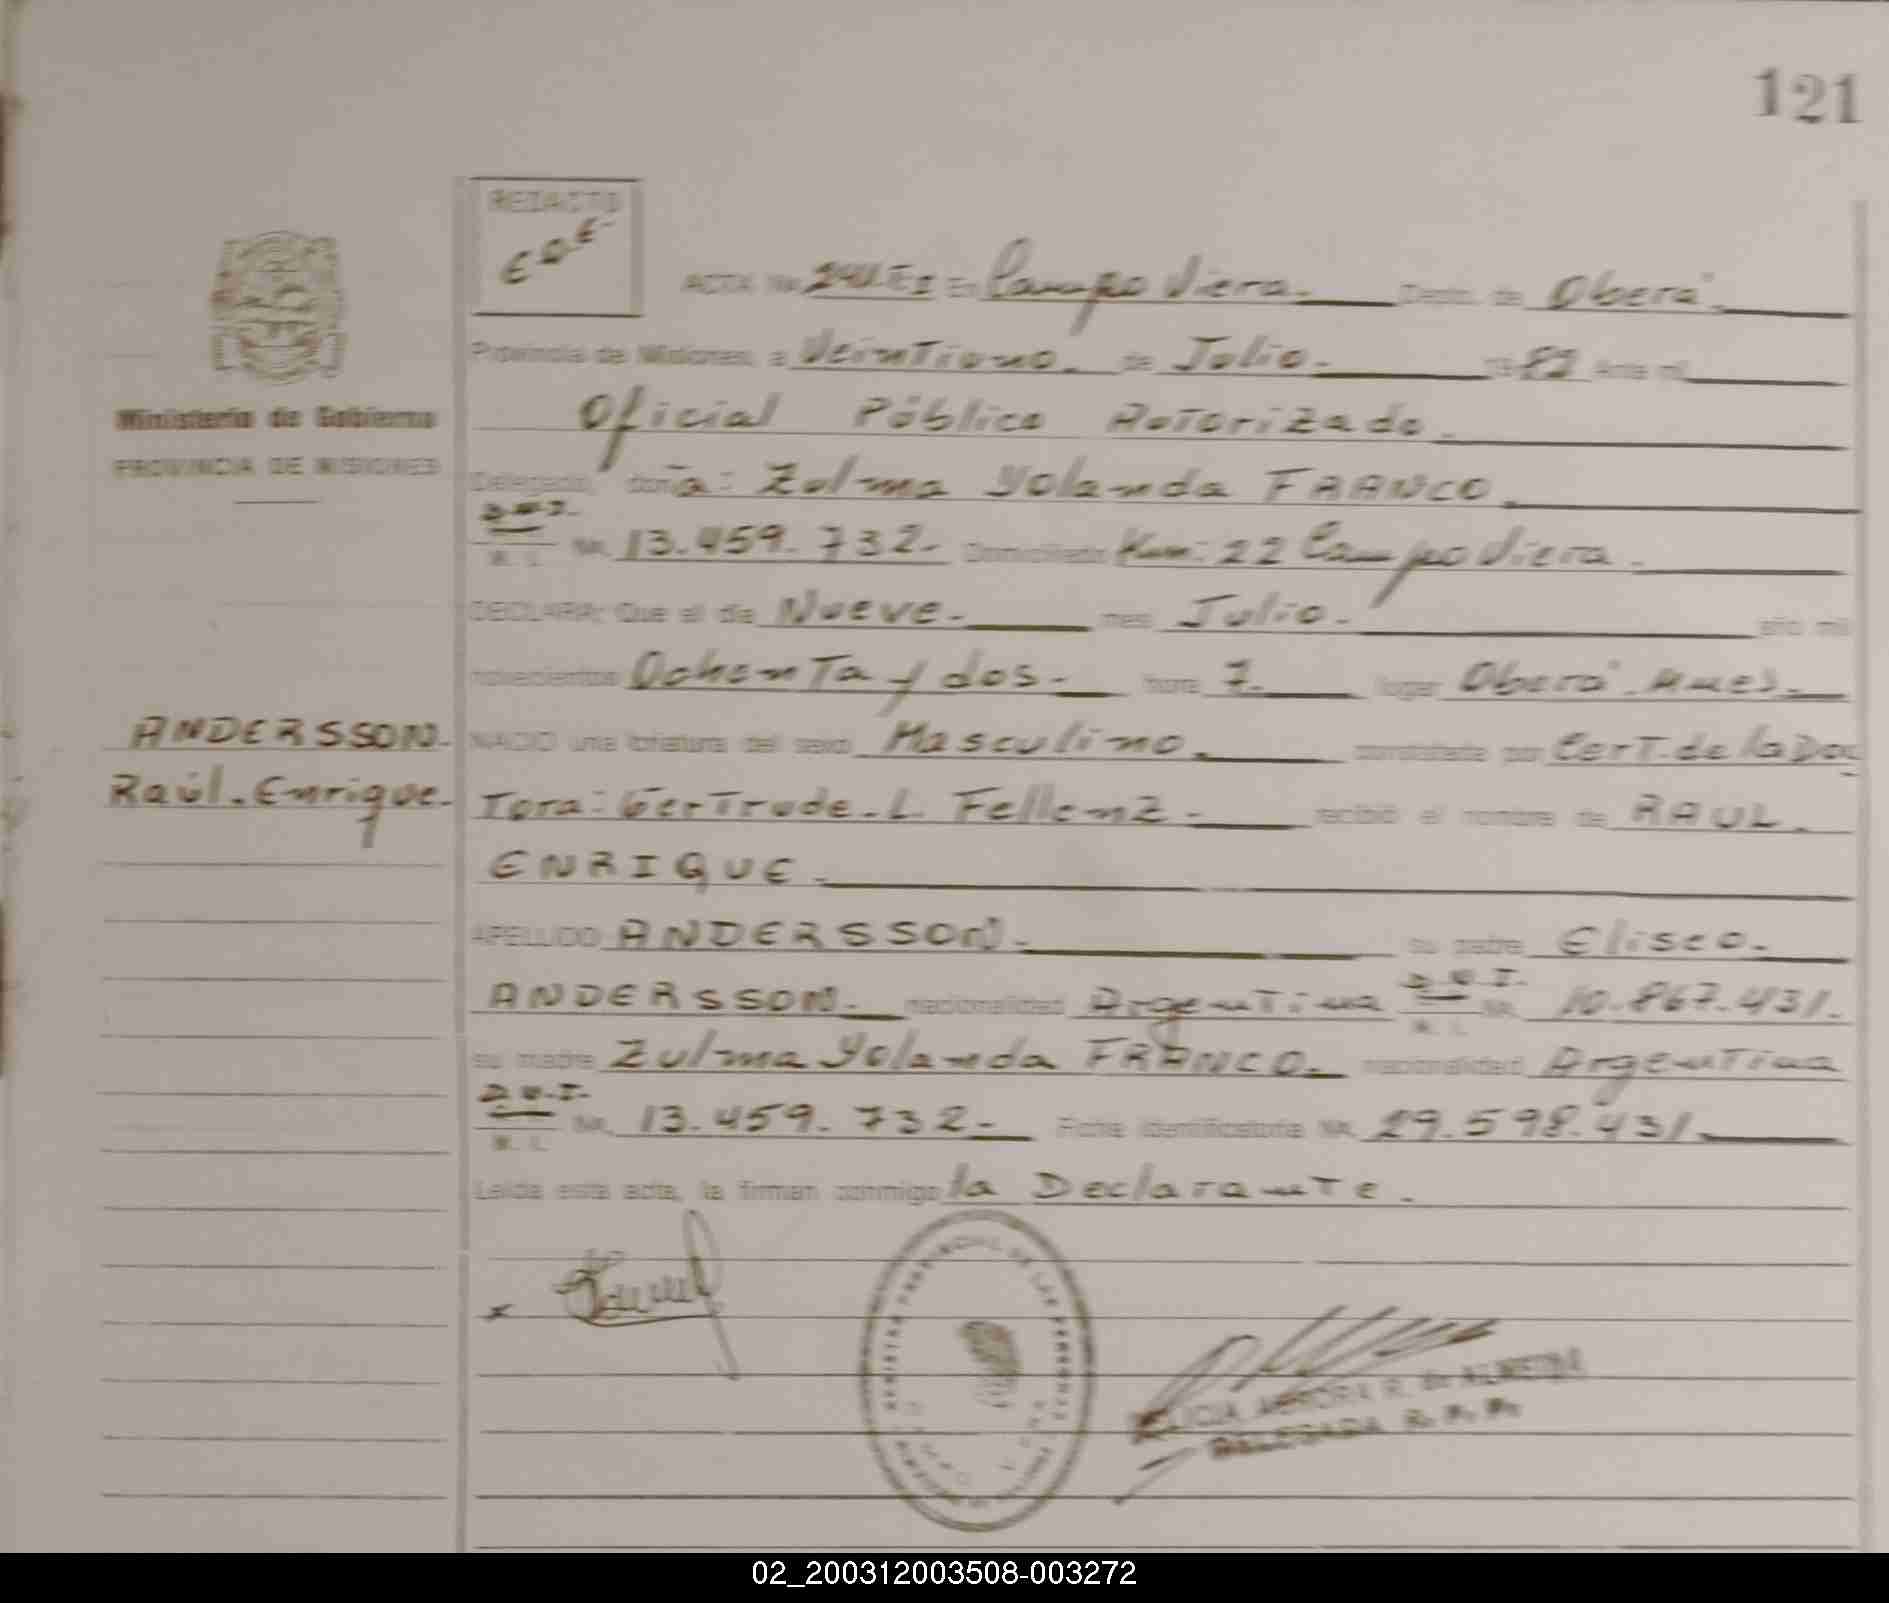 121
REDACTO
E.D.E.
ACTA Nº En Campo Viera. Dpto. de Oberá.
Provincia de Misiones, a Veintiuno. de Julio. 1982 Ante mi
Ministerio de Gobierno
Oficial Público Autorizado.
PROVINCIA DE MISIONES
Delegado, doña: Zulma Yolanda FRANCO.
D.N.I.
M. I. Nº 13.459.732. Domiciliado Km: 22 Campo Viera.
DECLARA: Que el día Nueve. mes Julio. año mil
novecientos Ochenta y dos. hora 7. lugar Oberá. Mnes.
ANDERSSON.
NACIO una criatura del sexo Masculino. constatada por Cert. de la Doc
Raúl. Enrique.
Tora: Gertrude. L. Fellenz. recibió el nombre de RAUL.
ENRIQUE.
APELLIDO ANDERSSON. su padre Eliseo.
ANDERSSON. nacionalidad Argentina D.N.I. M. I. Nº 10.867.431.
su madre Zulma Yolanda FRANCO. nacionalidad Argentina
D.N.I.
M. I. Nº 13.459.732. Ficha Identificatoria Nº 29.598.431.
Leída esta acta, la firman conmigo la Declarante.
REGISTRO PROVINCIAL DE LAS PERSONAS
ALICIA AURORA R. de ALMEIDA
DELEGADA R. P. P.
02_200312003508-003272